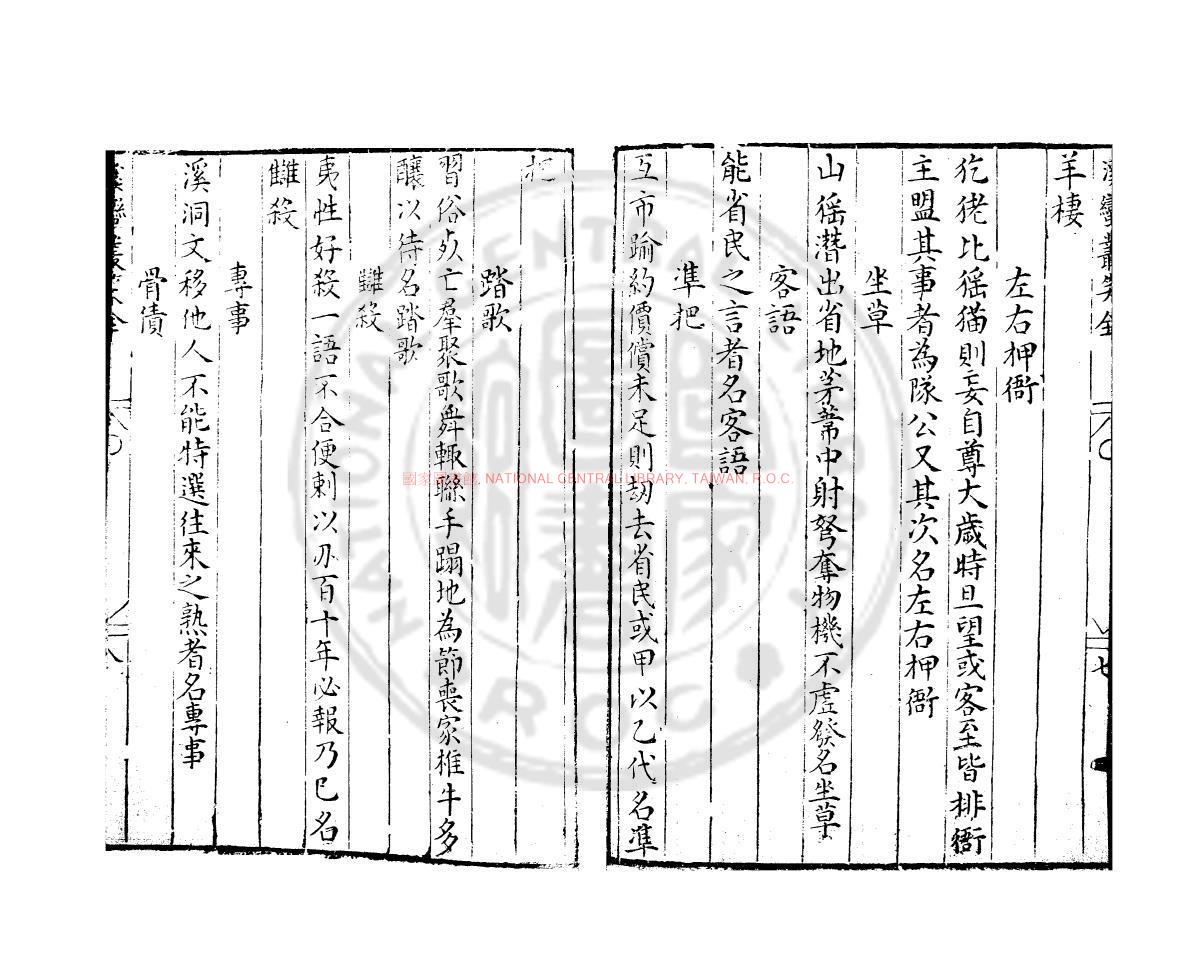 溪蠻叢笑全
七
羊棲
左右押衙
犵狫比猺猫則妄自尊大歲時旦望或客至皆排衙
主盟其事者為隊公又其次名左右押衙
坐草
山猺潛出省地茅葦中射弩奪物機不虛發名坐草
客語
能省民之言者名客語
準把
互市踰約價償未足則劫去省民或甲以乙代名準
把
踏歌
習俗死亡羣聚歌舞輒聯手蹋地為節喪家椎牛多
釀以待名踏歌
讎殺
夷性好殺一語不合便剌以刃百十年必報乃已名
讎殺
專事
溪洞文移他人不能特選往來之熟者名專事
骨債
國家圖書館, NATIONAL CENTRAL LIBRARY, TAIWAN, R.O.C.